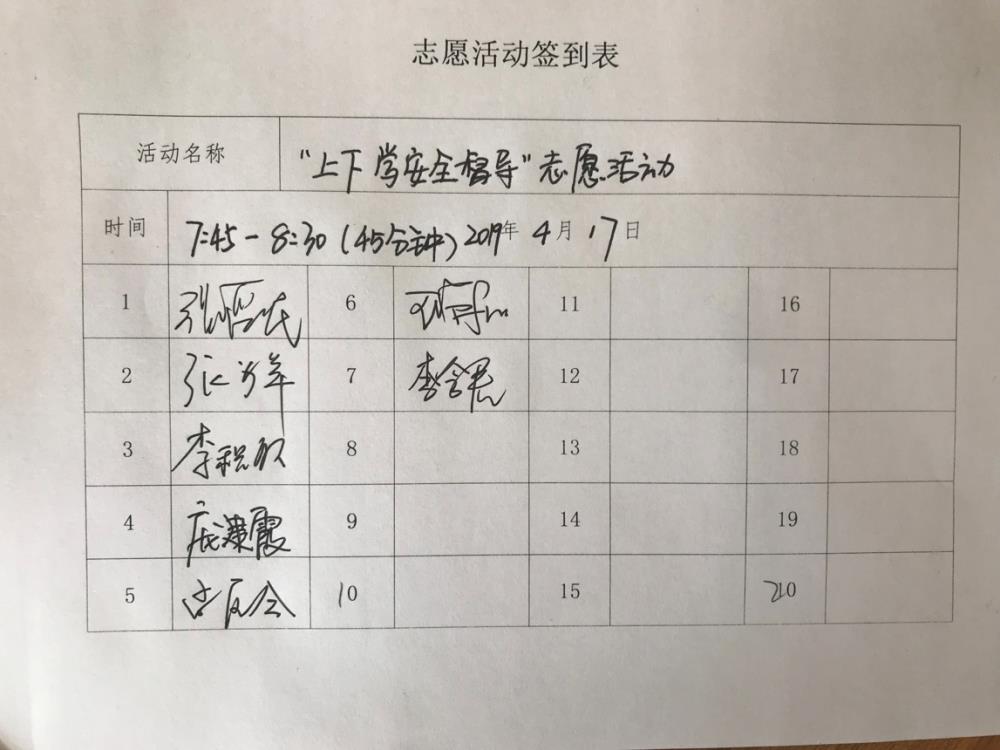 志愿活动签到表
活动名称 “上下学安全督导”志愿活动
时间 7:45-8:30(45分钟)2019年4月17日
1 张 6 11 16
2 张 7 李含君 12 17
3 李 8 13 18
4 霞 9 14 19
5 10 15 20